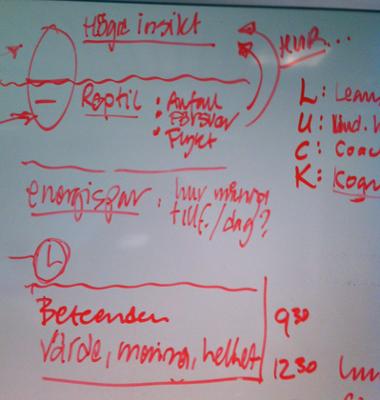 Högre insikt
HUR...
Reptil : Anfall
• Försvar
• Flykt
L: Lean
U: Und.
C: Coac
K: Kogn
energispar : hur många
tillf./dag?
Beteenden
Värde, mening, helhet
9 30
12 30